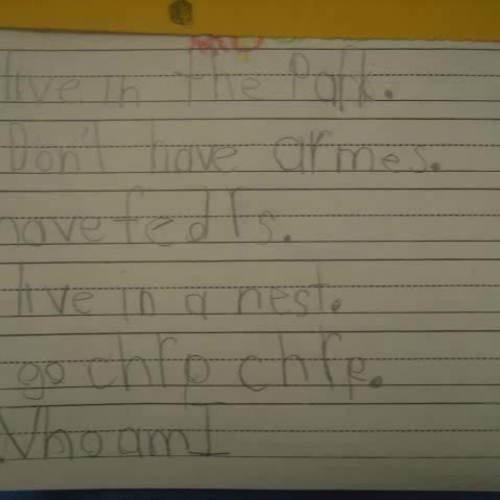 live in the Park.
Don't have armes.
have fedrs.
live in a nest.
go chrp chrp.
Who am I